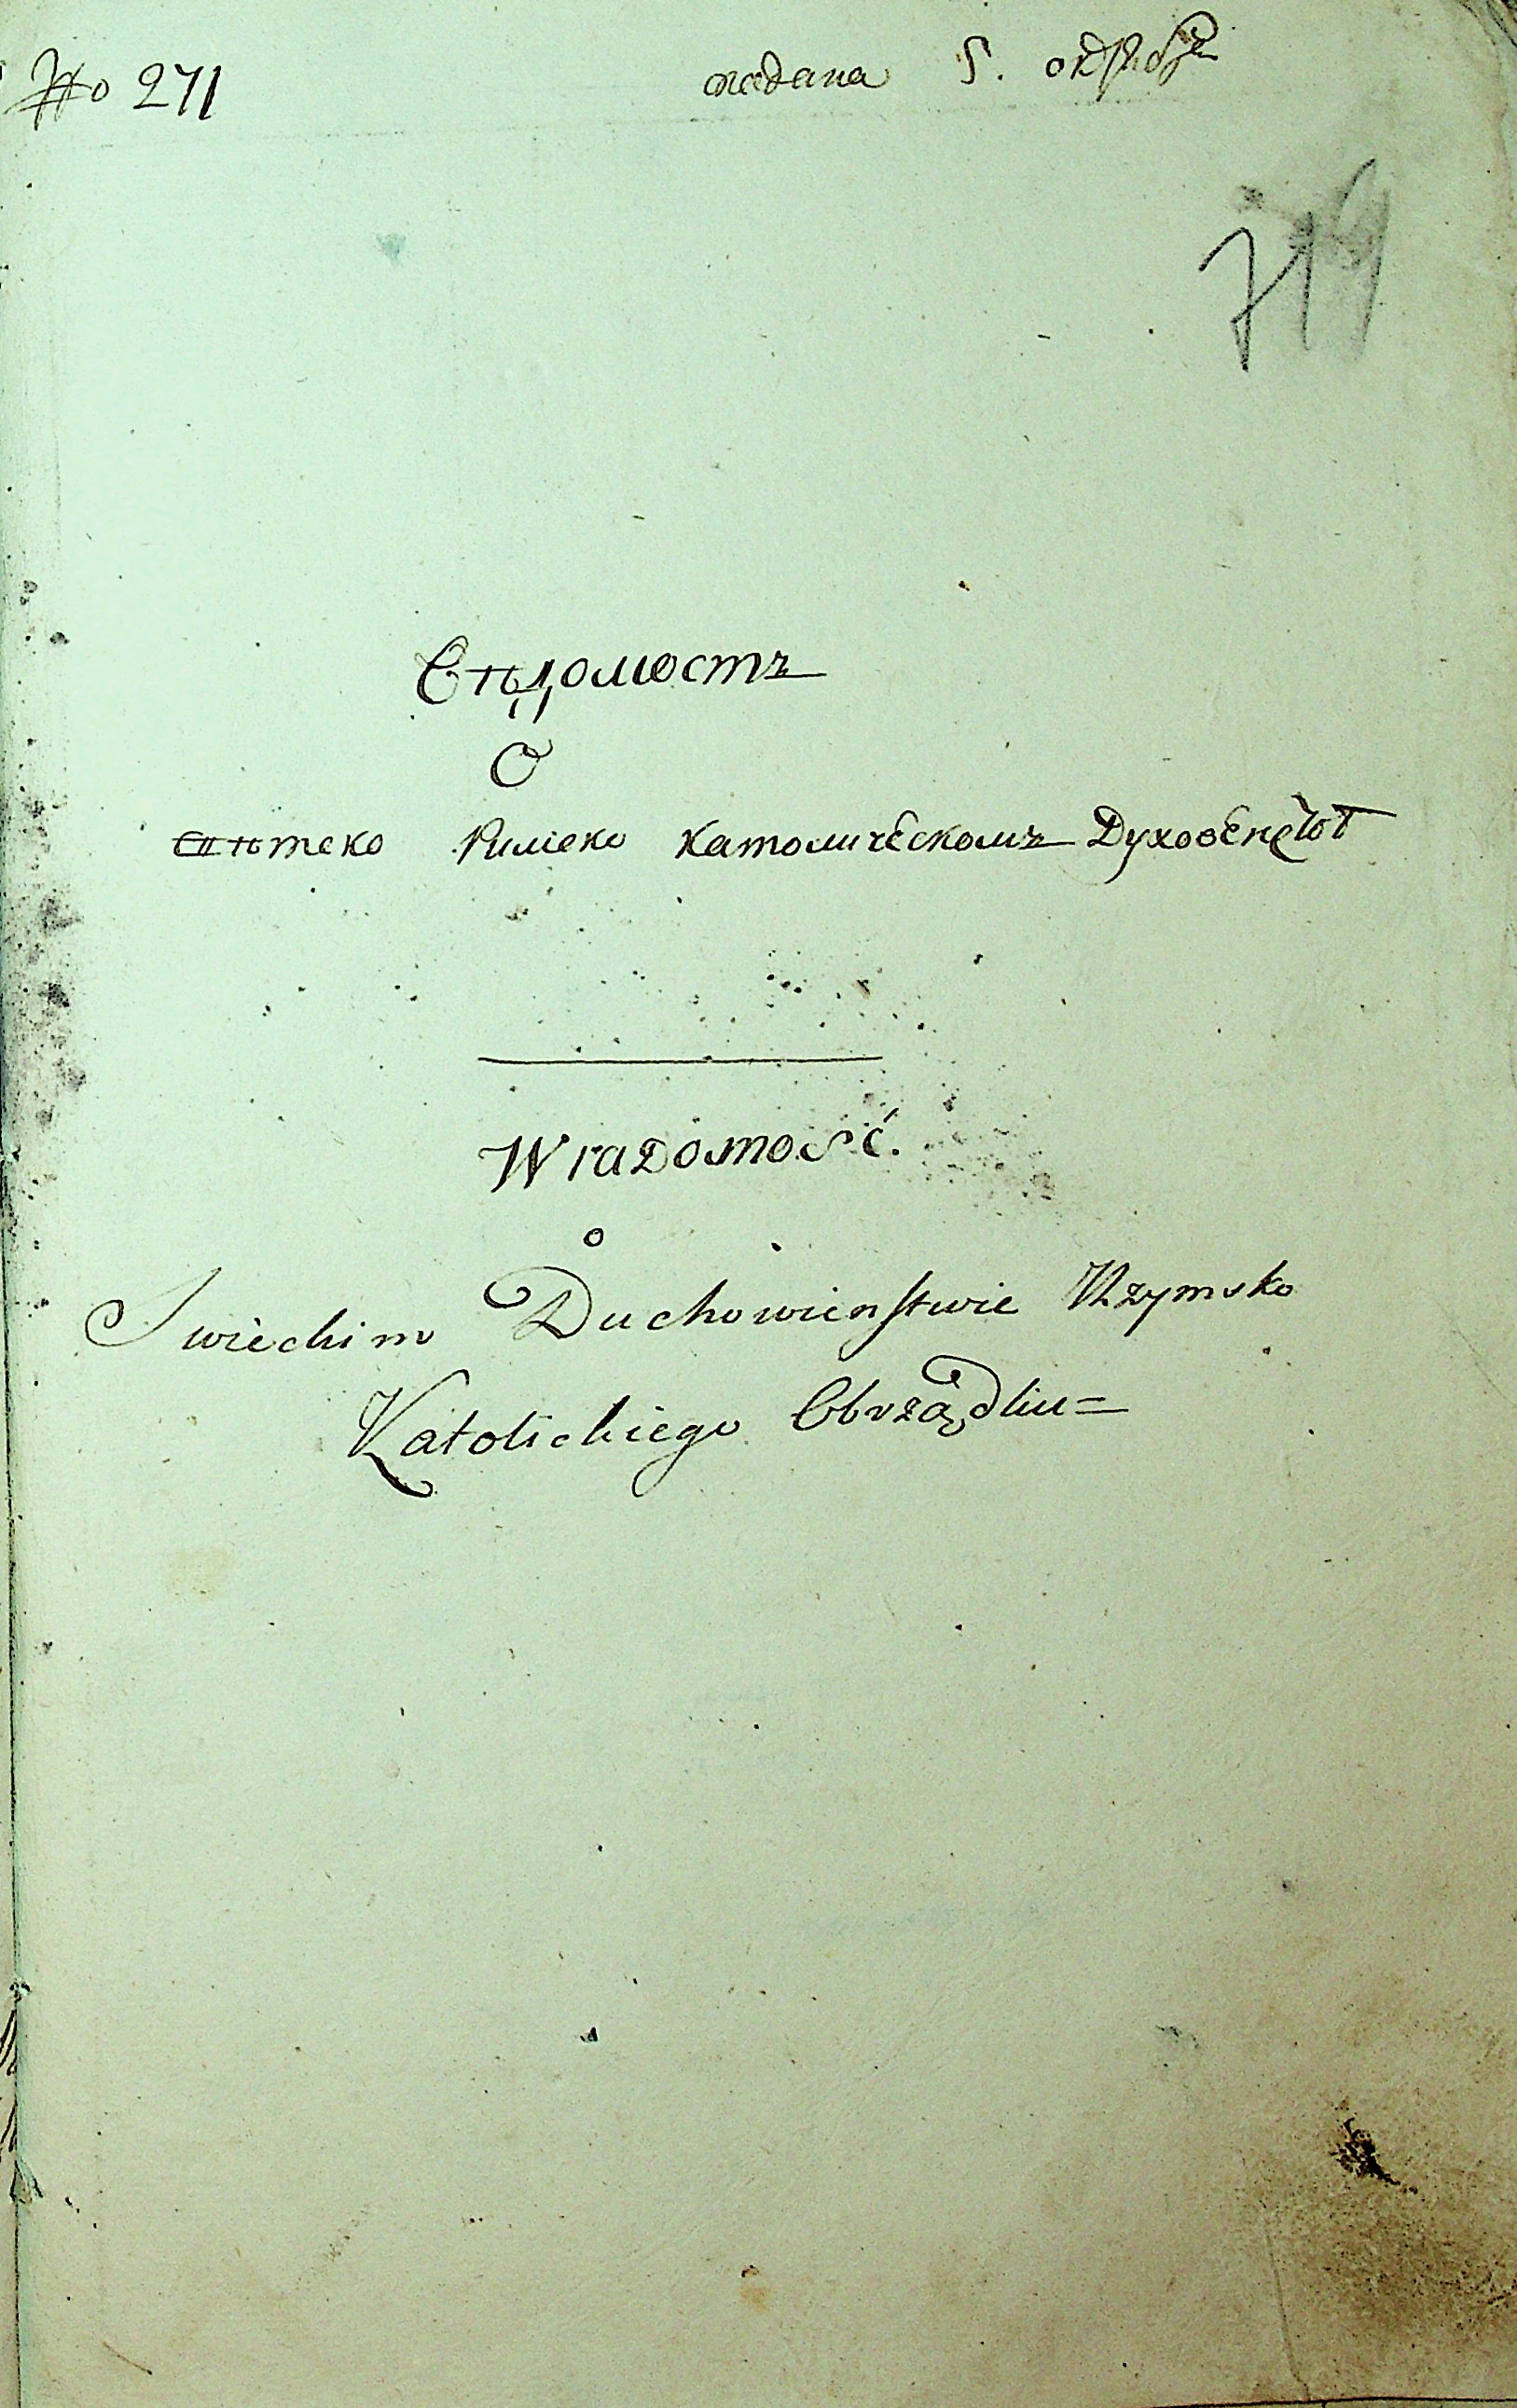 No 271
подана 5. октября
719
Вѣдомость
О
Свѣтско Римско Католическомъ Духовенствѣ
Wiadomość.
o
Swieckim Duchowienstwie Rzymsko
Katolickiego Obrządku=